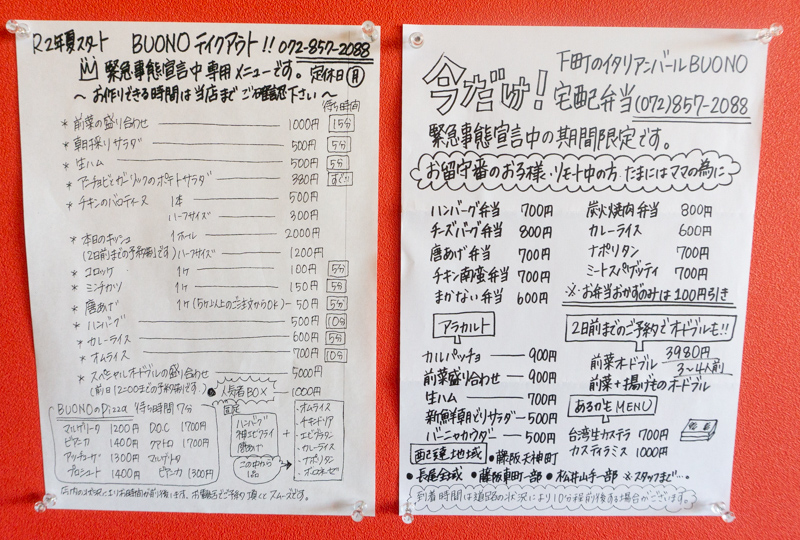 R2年夏スタート BUONO テイクアウト!! 072-857-2088
緊急事態宣言中専用メニューです。 定休日(月)
〜お作りできる時間は当店までご確認下さい〜
待ち時間
* 前菜の盛り合わせ 1000円 15分
* 朝採りサラダ 500円 5分
* 生ハム 500円 5分
* アンチョビとガーリックのポテトサラダ 380円 すぐ
* チキンのバロティーヌ 1本 500円
ハーフサイズ 300円
* 本日のキッシュ 1ホール 2000円
(2日前までの予約制です) ハーフサイズ 1200円
* コロッケ 1ヶ 100円 5分
* ミンチカツ 1ヶ 150円 5分
* 唐あげ 1ヶ(5ヶ以上のご注文からOK) 50円 5分
* ハンバーグ 500円 10分
* カレーライス 600円 5分
* オムライス 700円 10分
* スペシャルオードブルの盛り合わせ 5000円
(前日12:00までの予約制です。)
人気者BOX 1000円
BUONOのPizza 待ち時間 7分
マルゲリータ 1200円 D.O.C 1700円
ビアンカ 1400円 クアトロ 1700円
アンチョビ 1300円 マルゲリータ
プロシュート 1400円 ビアンカ 1300円
固定
ハンバーグ
唐あげ
+
この中から
1品
・オムライス
・チキンドリア
・エビグラタン
・カレーライス
・ナポリタン
・ボロネーゼ
下町のイタリアンバールBUONO
今だけ! 宅配弁当 (072)857-2088
緊急事態宣言中の期間限定です。
お留守番のお子様・リモート中の方 たまにはママの為に
ハンバーグ弁当 700円
チーズバーグ弁当 800円
唐あげ弁当 700円
チキン南蛮弁当 700円
まかない弁当 600円
炭火焼肉弁当 800円
カレーライス 600円
ナポリタン 700円
ミートスパゲッティ 700円
※お弁当おかずのみは100円引き
アラカルト
カルパッチョ 900円
前菜盛り合わせ 900円
生ハム 700円
新鮮朝どりサラダ 500円
バーニャカウダー 500円
2日前までのご予約でオードブルも!!
前菜オードブル 3980円
3〜4人前
前菜+揚げものオードブル
あるかもMENU
台湾生カステラ 700円
カスティラミス 1000円
配達地域 ・藤阪天神町
・長尾全域 ・藤阪東町一部 ・松井山手一部 ※スタッフまで…。
到着時間は道路の状況により10分程前後する場合がございます。